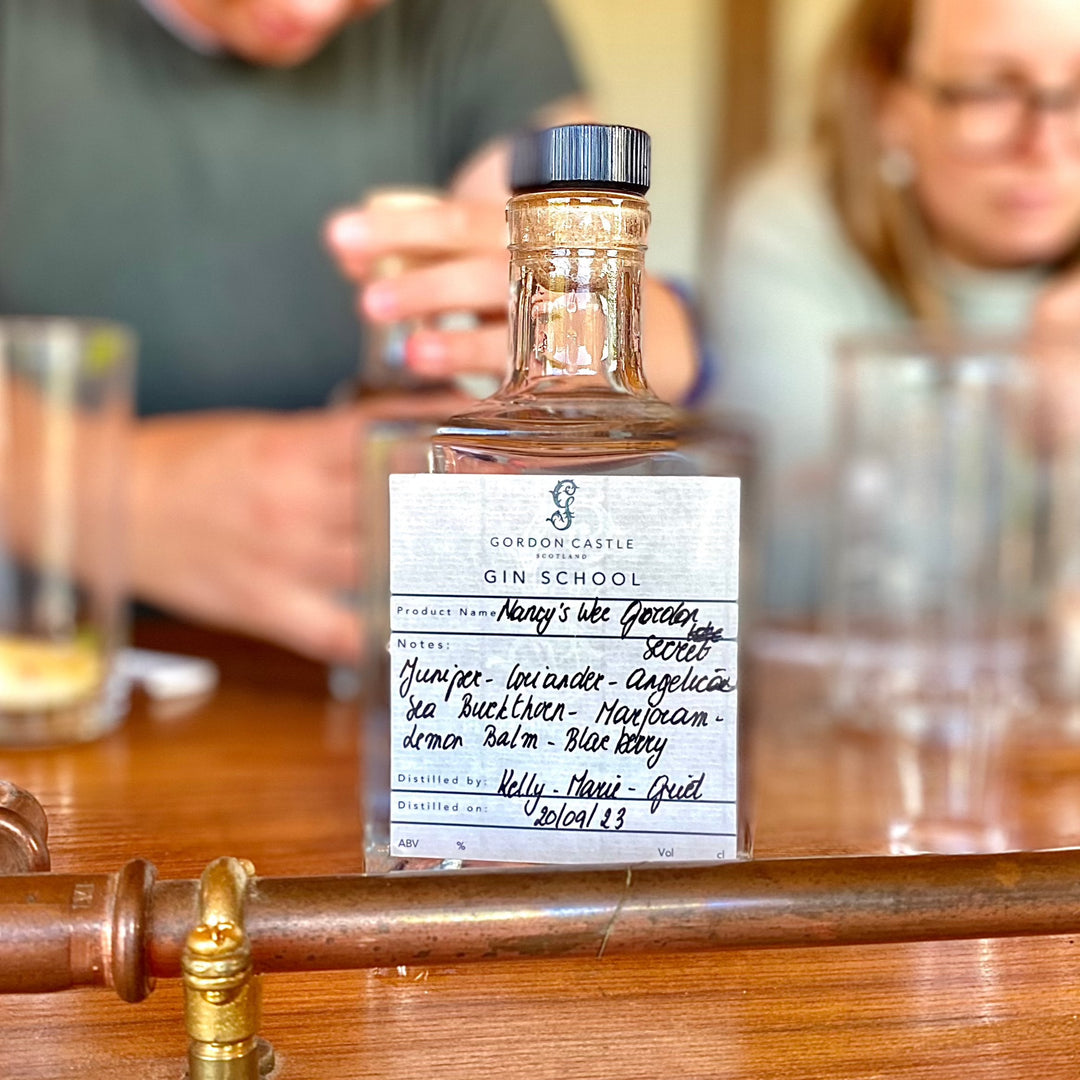 GORDON CASTLE
SCOTLAND
GIN SCHOOL
Product Name Nancy's Wee Gordon
Secret
Notes:
Juniper - Coriander - Angelica
Sea Buckthorn - Marjoram -
Lemon Balm - Blaeberry
Distilled by: Kelly - Marie - Griet
Distilled on: 20/09/23
ABV % Vol cl